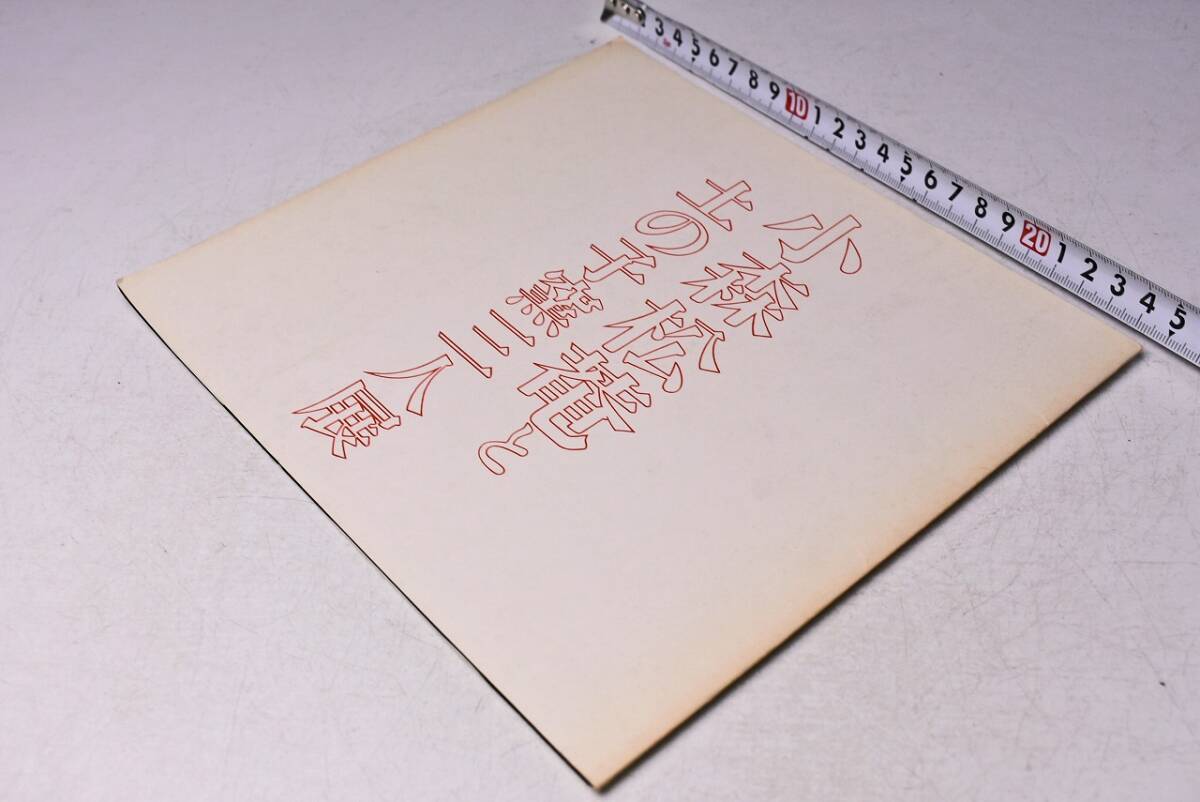 小森松菴と
土の子窯二人展
3 4 5 6 7 8 9 10 1 2 3 4 5 6 7 8 9 20 1 2 3 4 5